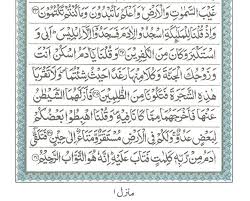 غَيْبَ السَّمٰوٰتِ وَالْاَرْضِ ۙ وَاَعْلَمُ مَا تُبْدُوْنَ وَمَا كُنْتُمْ تَكْتُمُوْنَ ﴿۳۳﴾
وَاِذْ قُلْنَا لِلْمَلٰٓئِكَةِ اسْجُدُوْا لِاٰدَمَ فَسَجَدُوْٓا اِلَّآ اِبْلِيْسَ ؕ اَبٰى وَ
اسْتَكْبَرَ وَكَانَ مِنَ الْكٰفِرِيْنَ ﴿۳۴﴾ وَقُلْنَا يٰٓاٰدَمُ اسْكُنْ اَنْتَ
وَزَوْجُكَ الْجَنَّةَ وَكُلَا مِنْهَا رَغَدًا حَيْثُ شِئْتُمَا وَلَا تَقْرَبَا
هٰذِهِ الشَّجَرَةَ فَتَكُوْنَا مِنَ الظّٰلِمِيْنَ ﴿۳۵﴾ فَاَزَلَّهُمَا الشَّيْطٰنُ
عَنْهَا فَاَخْرَجَهُمَا مِمَّا كَانَا فِيْهِ ۪ وَقُلْنَا اهْبِطُوْا بَعْضُكُمْ
لِبَعْضٍ عَدُوٌّ ۚ وَلَكُمْ فِى الْاَرْضِ مُسْتَقَرٌّ وَّمَتَاعٌ اِلٰى حِيْنٍ ﴿۳۶﴾ فَتَلَقّٰٓى
اٰدَمُ مِنْ رَّبِّهٖ كَلِمٰتٍ فَتَابَ عَلَيْهِ ؕ اِنَّهٗ هُوَ التَّوَّابُ الرَّحِيْمُ ﴿۳۷﴾
منزل ۱